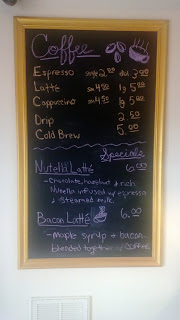 Coffee
Espresso single 2.00 dbl 3.00
Latté sm 4.50 lg 5.00
Cappuccino sm 4.50 lg 5.00
Drip 2.50
Cold Brew 5.00
Specials
Nutella Latté 6.00
- Chocolate, hazelnut & rich
Nutella infused w/ espresso
& steamed milk
Bacon Latté 6.00
- Maple syrup & bacon
blended together w/ coffee